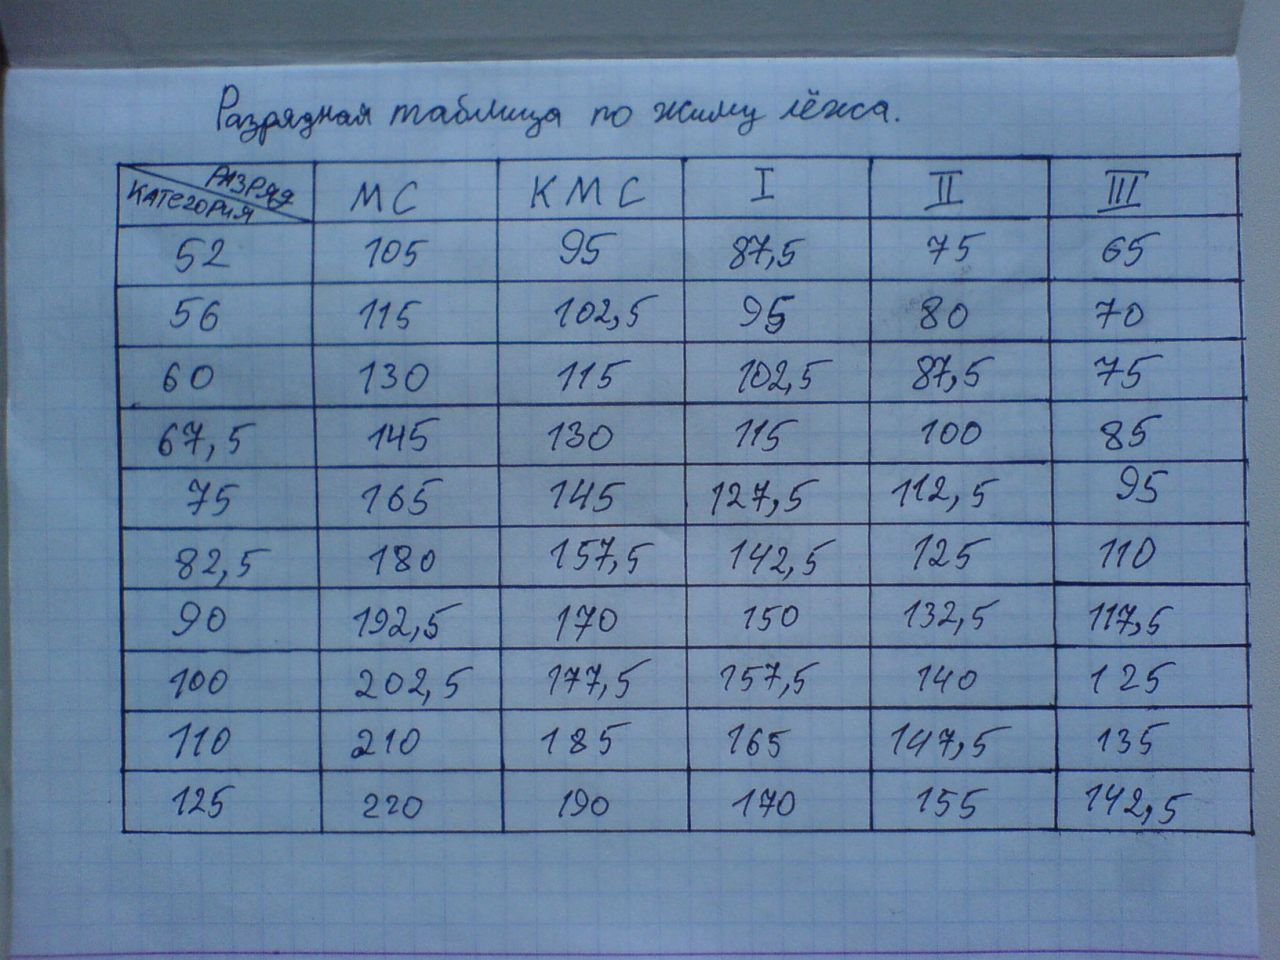 Разрядная таблица по жиму лёжа.
РАЗРЯД КАТЕГОРИЯ МС КМС I II III
52 105 95 87,5 75 65
56 115 102,5 95 80 70
60 130 115 102,5 87,5 75
67,5 145 130 115 100 85
75 165 145 127,5 112,5 95
82,5 180 157,5 142,5 125 110
90 192,5 170 150 132,5 117,5
100 202,5 177,5 157,5 140 125
110 210 185 165 147,5 135
125 220 190 170 155 142,5